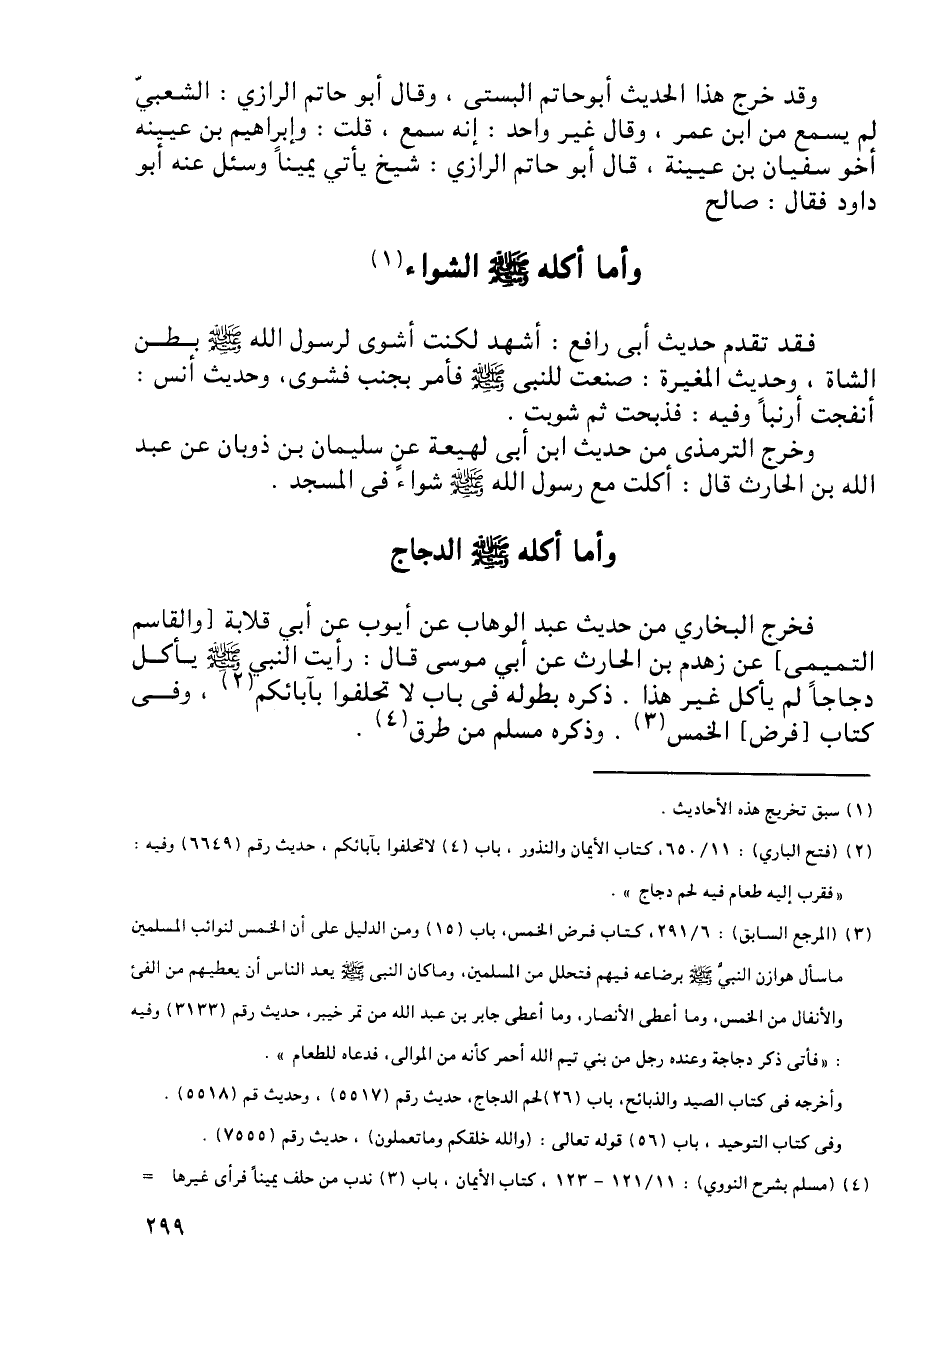 وقد خرج هذا الحديث أبوحاتم البستى ، وقال أبو حاتم الرازي : الشعبيّ
لم يسمع من ابن عمر ، وقال غير واحد : إنه سمع ، قلت : وإبراهيم بن عيينه
أخو سفيان بن عيينة ، قال أبو حاتم الرازي : شيخ يأتي يميناً وسئل عنه أبو
داود فقال : صالح
وأما أكله ﷺ الشواء(١)
فقد تقدم حديث أبى رافع : أشهد لكنت أشوى لرسول الله ﷺ بطن
الشاة ، وحديث المغيرة : صنعت للنبى ﷺ فأمر بجنب فشوى، وحديث أنس :
أنفجت أرنباً وفيه : فذبحت ثم شويت .
وخرج الترمذى من حديث ابن أبى لهيعة عن سليمان بن ذوبان عن عبد
الله بن الحارث قال : أكلت مع رسول الله ﷺ شواءً فى المسجد .
وأما أكله ﷺ الدجاج
فخرج البخاري من حديث عبد الوهاب عن أيوب عن أبي قلابة [والقاسم
التميمى] عن زهدم بن الحارث عن أبي موسى قال : رأيت النبي ﷺ يأكل
دجاجاً لم يأكل غير هذا . ذكره بطوله فى باب لا تحلفوا بآبائكم(٢) ، وفى
كتاب [فرض] الخمس(٣) . وذكره مسلم من طرق(٤) .
(١) سبق تخريج هذه الأحاديث .
(٢) (فتح الباري) : ٦٥٠/١١، كتاب الأيمان والنذور ، باب (٤) لاتحلفوا بآبائكم ، حديث رقم (٦٦٤٩) وفيه :
«فقرب إليه طعام فيه لحم دجاج » .
(٣) (المرجع السابق) : ٢٩١/٦، كتاب فرض الخمس، باب (١٥) ومن الدليل على أن الخمس لنوائب المسلمين
ماسأل هوازن النبيُّ ﷺ برضاعه فيهم فتحلل من المسلمين، وماكان النبى ﷺ يعد الناس أن يعطيهم من الفئ
والأنفال من الخمس، وما أعطى الأنصار، وما أعطى جابر بن عبد الله من تمر خيبر، حديث رقم (٣١٣٣) وفيه
: «فأتى ذكر دجاجة وعنده رجل من بني تيم الله أحمر كأنه من الموالى، فدعاه للطعام » .
وأخرجه فى كتاب الصيد والذبائح، باب (٢٦)لحم الدجاج، حديث رقم (٥٥١٧) ، وحديث قم (٥٥١٨) .
وفى كتاب التوحيد ، باب (٥٦) قوله تعالى : (والله خلقكم وماتعملون) ، حديث رقم (٧٥٥٥) .
(٤) (مسلم بشرح النووي) : ١٢١/١١ - ١٢٣ ، كتاب الأيمان ، باب (٣) ندب من حلف يميناً فرأى غيرها =
٢٩٩